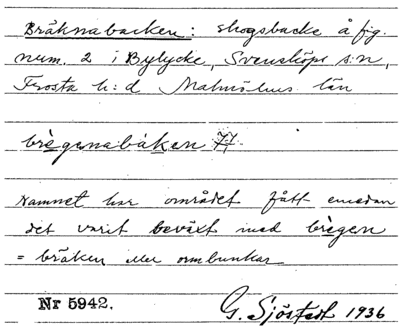 Bräknabacken: skogsbacke å fig.
num. 2 i Bylycke, Svensköps s:n,
Frosta h:d Malmöhus län
brègenabàken 77
Namnet har området fått emedan
det varit beväxt med brègen
= bräken eller ormbunkar
Nr 5942.
G. Sjöstedt 1936